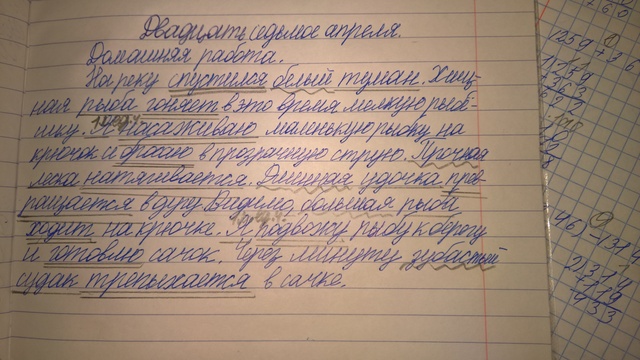 Двадцать седьмое апреля.
Домашняя работа.
На реку спустился белый туман. Хищ-
ная рыба гоняет в это время мелкую рыб-
ёшку. Я насаживаю маленькую рыбку на
крючок и бросаю в прозрачную струю. Прочная
леска натягивается. Длинная удочка пре-
вращается в дугу. Видимо, большая рыба
ходит на крючке. Я подвожу рыбу к берегу
и готовлю сачок. Через минуту зубастый
судак трепыхается в сачке.
1259